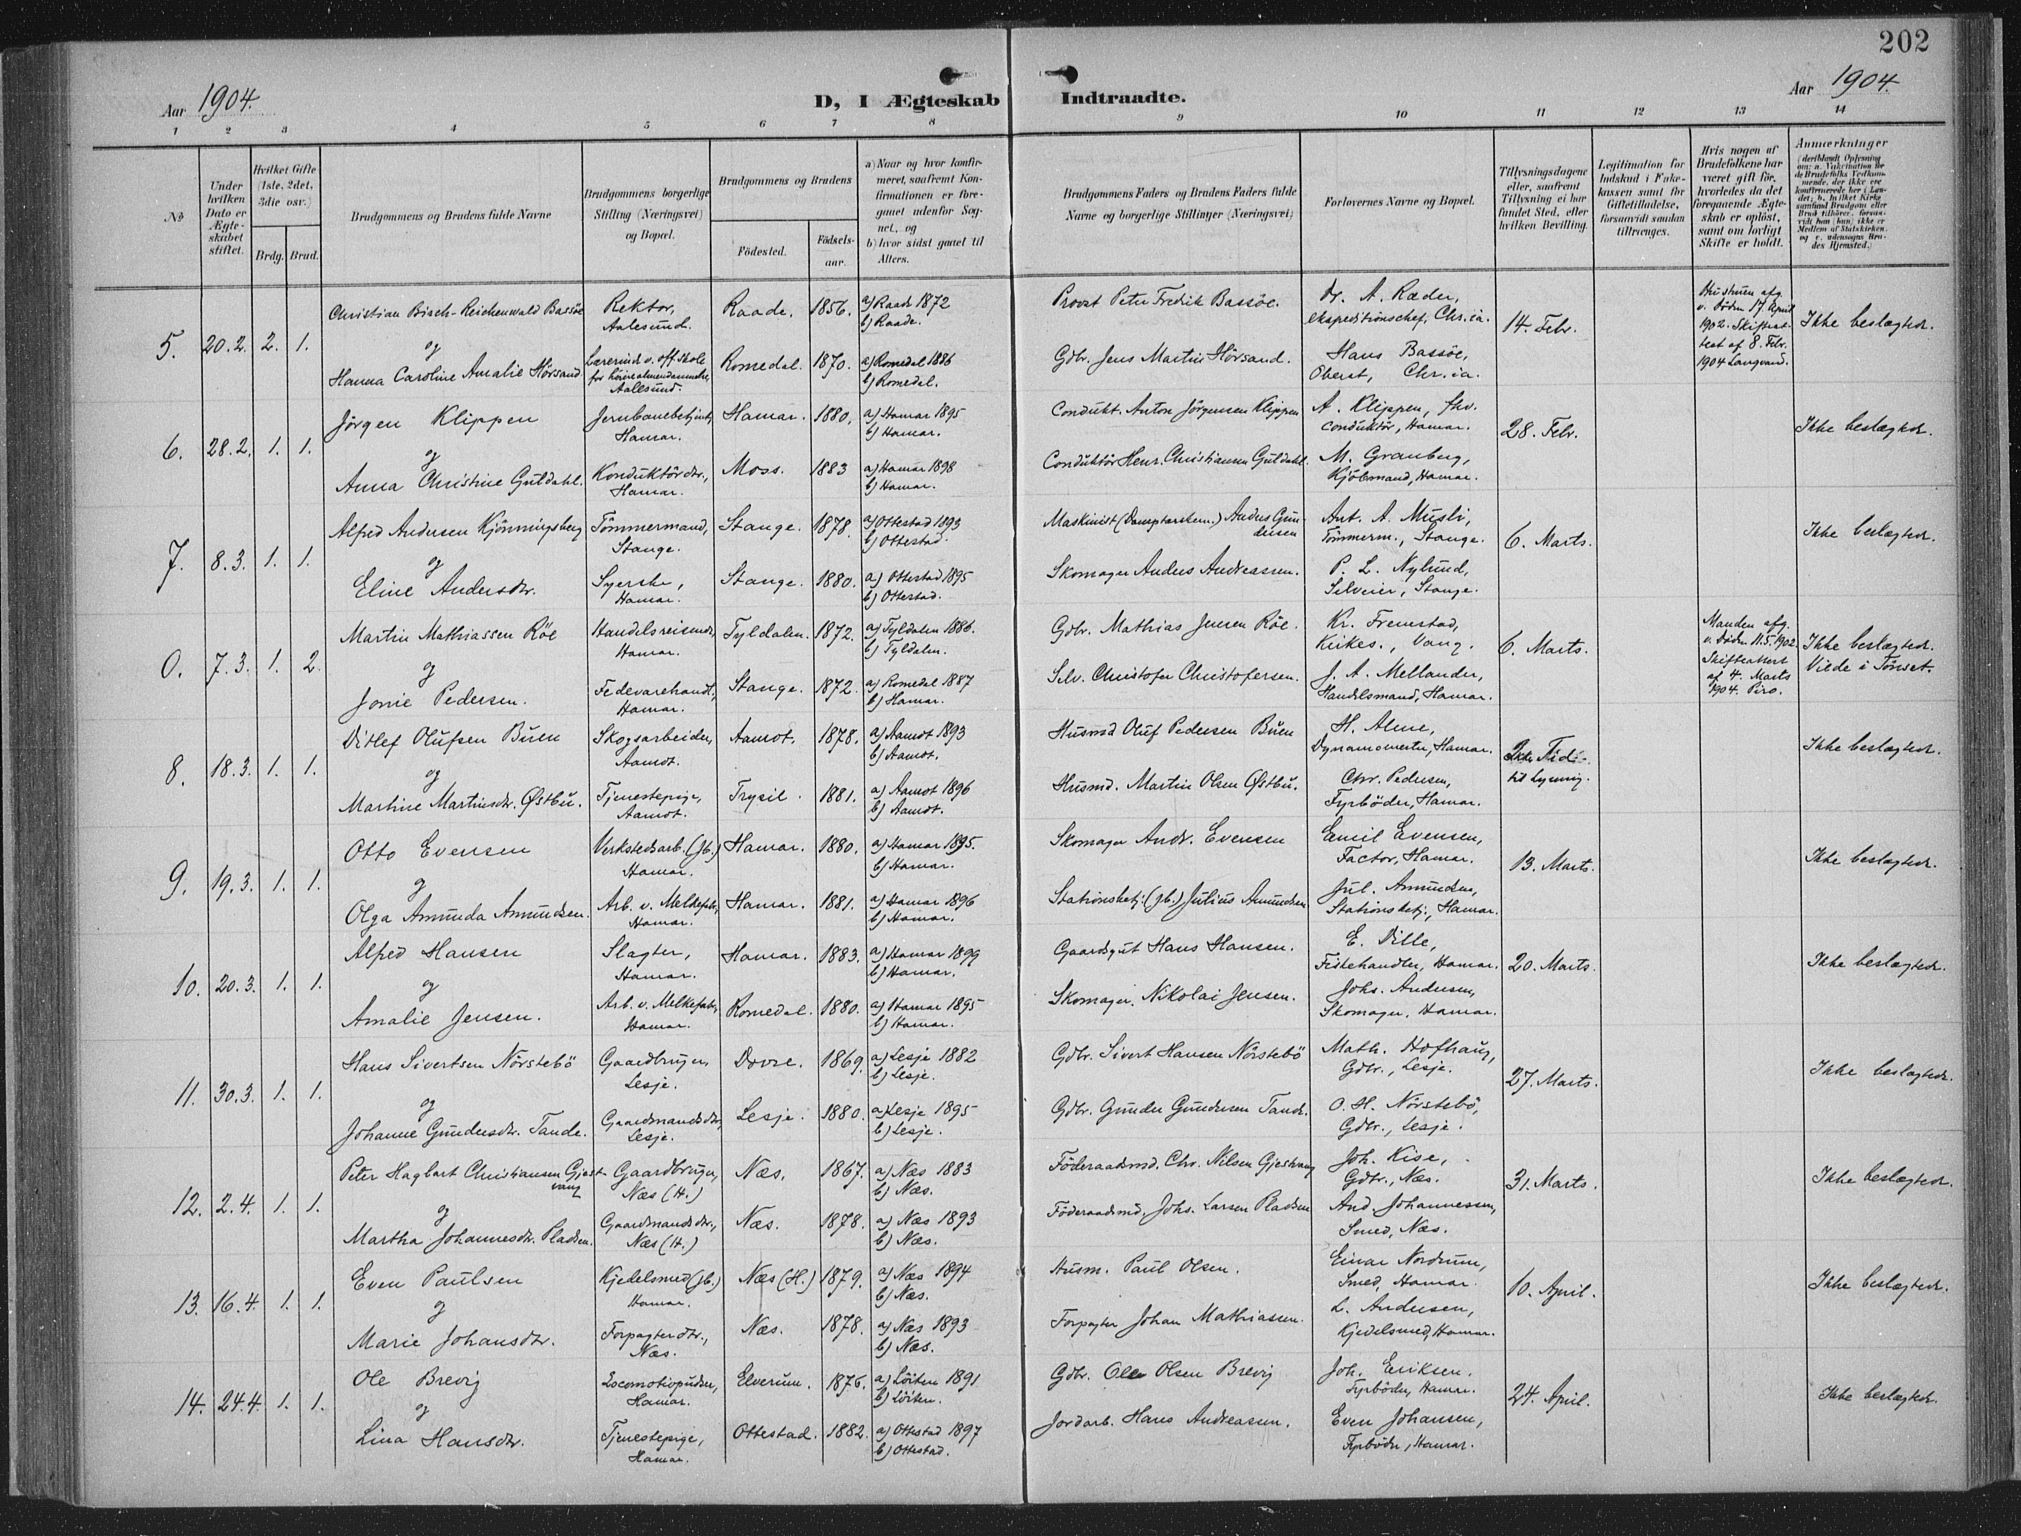 202
Aar 1904.
D, I Ægteskab Indtraadte.
Aar 1904.
1 2 3 4 5 6 7 8 9 10 11 12 13 14
No
Under hvilken Dato er Ægteskabet stiftet.
Hvilket Gifte (1ste, 2det, 3die osv.)
Brdg. Brud.
Brudgommens og Brudens fulde Navne
Brudgommens borgerlige Stilling (Næringsvei) og Bopæl.
Brudgommens og Brudens
Fødested.
Fødselsaar.
a) Naar og hvor konfirmeret, saafremt Konfirmationen er foregaaet udenfor Sognet, og
b) hvor sidst gaaet til Alters.
Brudgommens Faders og Brudens Faders fulde Navne og borgerlige Stillinger (Næringsvei)
Forlovernes Navne og Bopæl.
Tillysningsdagene eller, saafremt Tillysning ei har fundet Sted, efter hvilken Bevilling.
Legitimation for Indskud i Enkekassen samt for Giftetilladelse, forsaavidt saadan tiltrænges.
Hvis nogen af Brudefolkene har været gift før, hvorledes da det foregaaende Ægteskab er opløst, samt om lovligt Skifte er holdt.
Anmerkninger
5. 20.2. 2. 1.
Christian Bisch-Reichenwald Bassøe Rektor, Aalesund. Raade. 1856. a) Raade 1872 b) Raade. Provst Peter Fredrik Bassøe. Dr. A. Ræder, Ekspeditionschef, Chr.ia. 14. Febr. Hustruen afg. v. Døden 17. April 1902. Skifteattest af 8. Febr. 1904 Langvand. Ikke beslægtede.
og
Hanna Caroline Amalie Hörsand Lærerinde v. off. skole for høiere almendannelse, Aalesund. Romedal. 1870. a) Romedal 1886 b) Romedal. Gdbr. Jens Martin Hörsand. Hans Bassøe, Oberst, Chr.ia.
6. 28.2. 1. 1.
Jörgen Klippen Jernbanebetjent, Hamar. Hamar. 1880. a) Hamar 1895 b) Hamar. Condukt. Anton Jörgensen Klippen A. Klippen, fhv. Conduktör, Hamar. 28. Febr. Ikke beslægtede.
og
Anna Christine Guldahl. Konduktördtr., Hamar. Moss. 1883 a) Hamar 1898 b) Hamar. Conduktör Henr. Christiansen Guldahl. M. Granberg, Kjöbmand, Hamar.
7. 8.3. 1. 1.
Alfred Andersen Kjönningsberg Tömmermand, Stange. Stange. 1878. a) Ottestad 1893 b) Ottestad. Maskinist (Damptærskem.) Anders Gundersen Ant. A. Musli, Tömmerm., Stange. 6. Marts. Ikke beslægtede.
og
Eline Andersdtr. Syerske, Hamar. Stange. 1880. a) Ottestad 1895 b) Ottestad. Skomager Anders Andreassen. P. L. Nylund, Selveier, Stange.
0. 7.3. 1. 2.
Martin Mathiassen Röe Handelsreisende, Hamar. Tyldalen. 1872. a) Tyldalen 1886. b) Tyldalen. Gdbr. Mathias Jensen Röe. Kr. Fremstad, Kirkes., Vang. 6. Marts. Manden afg. v. Døden 11.5.1902. Skifteattest af 4. Marts 1904. Piro. Ikke beslægtede. Viede i Tönset.
og
Jonie Pedersen. Fedevarehandl, Hamar. Stange. 1872. a) Romedal 1887 b) Hamar. Selv. Christofer Christofersen. J. A. Mellander, Handelsmand, Hamar.
8. 18.3. 1. 1.
Ditlef Olufsen Buen Skogsarbeider, Aamot. Aamot. 1878. a) Aamot 1893 b) Aamot. Husmd Oluf Pedersen Buen H. Alme, Dynamomester, Hamar. Ikke Tid til Lysning. Ikke beslægtede.
og
Martine Martinsdtr. Østbu. Tjenestepige, Aamot. Trysil. 1881. a) Aamot 1896 b) Aamot. Husmd. Martin Olsen Østbu. Chr. Pedersen, Fyrböder, Hamar.
9. 19.3. 1. 1.
Otto Evensen Verkstedsarb. (Jb.) Hamar. Hamar. 1880. a) Hamar 1895. b) Hamar. Skomager Andr. Evensen Emil Evensen, Factor, Hamar. 13. Marts. Ikke beslægtede.
og
Olga Amunda Amundsen. Arb. v. Melkefabr., Hamar. Hamar. 1881. a) Hamar 1896 b) Hamar. Stationsbetj. (Jb.) Julius Amundsen Jul. Amundsen, Stationsbetj., Hamar.
10. 20.3. 1. 1.
Alfred Hansen Slagter, Hamar. Hamar. 1883. a) Hamar 1899 b) Hamar. Gaardgut Hans Hansen. E. Dille, Fiskehandler, Hamar. 20. Marts. Ikke beslægtede.
og
Amalie Jensen. Arb. v. Melkefabr., Hamar. Romedal. 1880. a) Hamar 1895 b) Hamar. Skomager Nikolai Jensen. Johs. Andersen, Skomager, Hamar.
11. 30.3. 1. 1.
Hans Sivertsen Nörstebö Gaardbruger, Lesje. Dovre. 1869. a) Lesje 1882 b) Lesje. Gdbr. Sivert Hansen Nörstebö Math. Hofhaug, Gdbr., Lesje. 27. Marts. Ikke beslægtede.
og
Johanne Gundersdtr. Tande. Gaardmandsdtr, Lesje. Lesje. 1880. a) Lesje 1895 b) Lesje. Gdbr. Gunder Gundersen Tande. O. H. Nörstebö, Gdbr., Lesje.
12. 2.4. 1. 1.
Peter Hagbart Christiansen Gjestvang Gaardbruger, Næs (H.) Næs. 1867. a) Næs 1883 b) Næs. Föderaadsmd. Chr. Nilsen Gjestvang Joh. Kise, Gdbr., Næs. 31. Marts. Ikke beslægtede.
og
Martha Johannesdtr. Pladsen. Gaardmandsdtr., Næs (H.) Næs. 1878. a) Næs 1893 b) Næs. Föderaadsmd. Johs. Larsen Pladsen And. Johannessen, Smed, Næs.
13. 16.4. 1. 1.
Even Paulsen Kjedelsmed (Jb.) Hamar. Næs (H.) 1879. a) Næs 1894 b) Næs. Husm. Paul Olsen. Einar Nordrum, Smed, Hamar. 10. April. Ikke beslægtede.
og
Marie Johansdtr. Forpagterdtr., Næs. Næs. 1878. a) Næs 1893 b) Næs. Forpagter Johan Mathiassen. L. Andersen, Kjedelsmed, Hamar.
14. 24.4. 1. 1.
Ole Brevig Locomotivpudser, Hamar. Elverum. 1876. a) Löiten 1891 b) Löiten. Gdbr. Ole Olsen Brevig Joh. Eriksen. Fyrböder, Hamar. 24. April. Ikke beslægtede.
og
Lina Hansdtr. Tjenestepige, Hamar. Ottestad. 1882. a) Ottestad 1897 b) Ottestad. Jordarb. Hans Andreassen. Even Johansen, Fyrböder, Hamar.